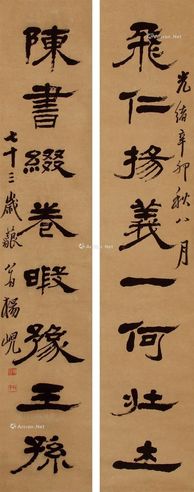 光緒辛卯秋八月
飛仁揚義一何壯士
陳書綴卷暇豫王孫
七十三歲藐翁楊峴